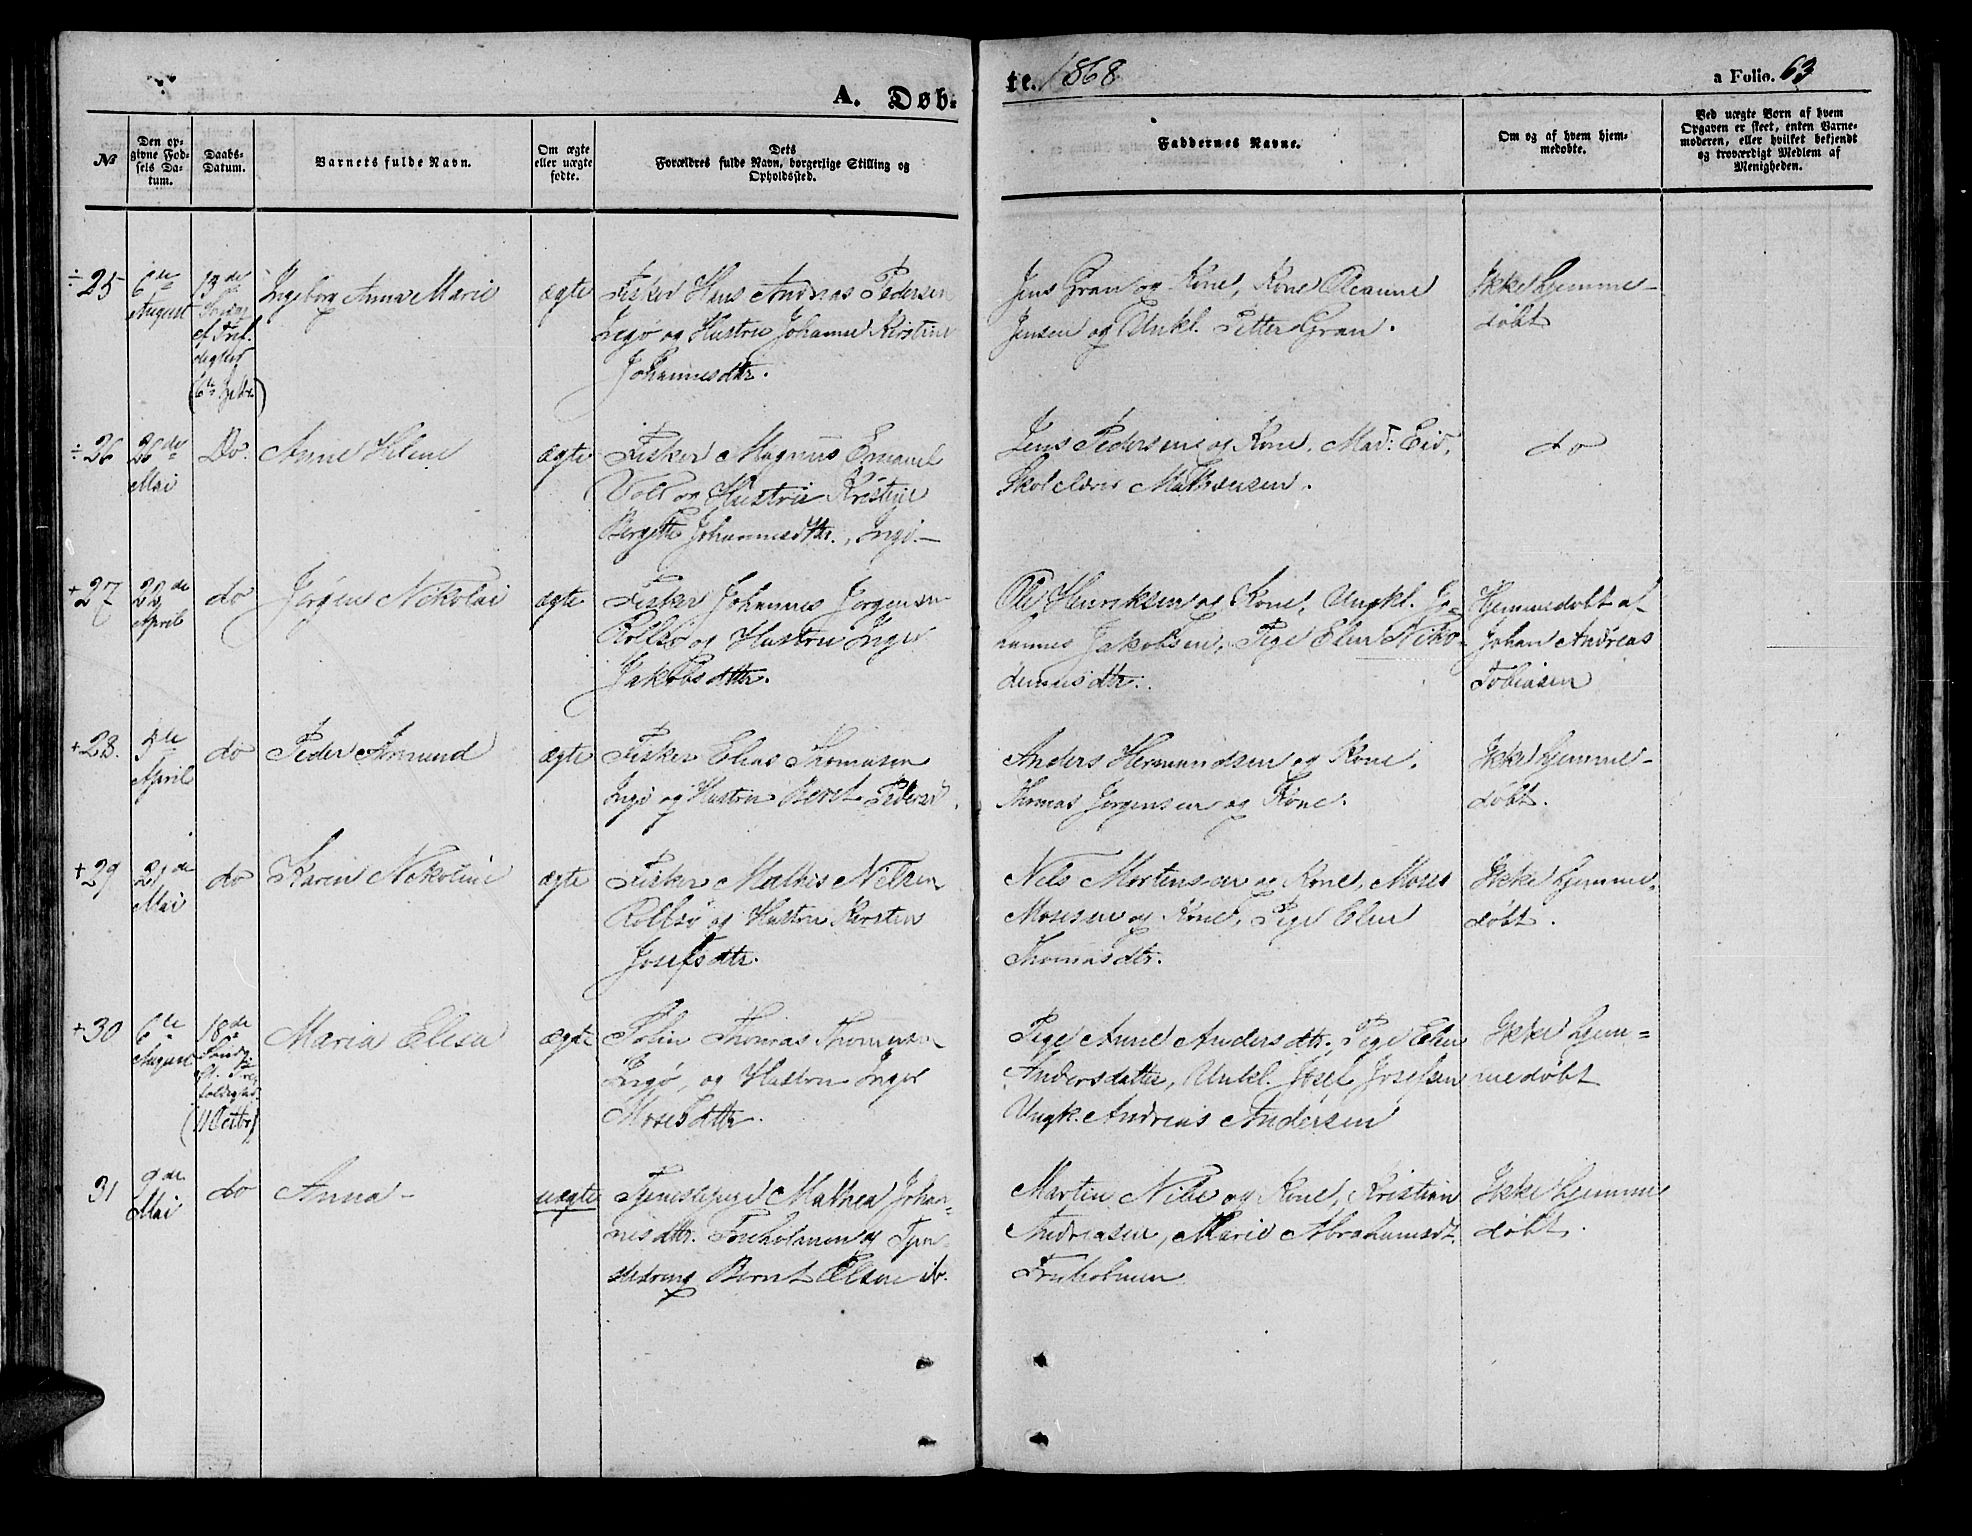 A. Døb-
te. 1868
a Folio. 63
№
Den op-
givne Fod-
sels Da-
tum.
Daabs-
Datum.
Barnets fulde Navn.
Om ægte
eller uægte
fødte.
Dets
Forældres fulde Navn, borgerlige Stilling og
Opholdssted.
Faddernes Navne.
Om og af hvem hjem-
medøbte.
Ved uægte Børn af hvem
Opgaven er skeet, enten Barne-
moderen, eller hvilket bekjendt
og troværdigt Medlem af
Menigheden.
÷25
6te
August
13de
Søndag
ef Tref.
(6te Septbr)
Ingeborg Anna Marie
ægte
Fisker Hans Andreas Pedersen
Ingø og Hustru Johanne Kirstine
Johannesdtr.
Jens Gran og Kone, Kone Oleanne
Jensen og Unkl. Petter Gran.
Ikke hjemme-
døbt
÷26
26de
Mai
Do.
Anne Helene
ægte
Fisker Magnus Emanuel
Vold og Hustru Kristine
Bergitte Johannesdtr., Ingø.
Jens Pedersen og Kone, Mad: Eid,
Skolelærer Mathiesen.
do
+27
22de
April
do
Jørgen Nikolai
ægte
Fisker Johannes Jørgensen
Rolfsø og Hustru Inger
Jakobsdttr.
Ole Henriksen og Kone, Ungkl. Jo-
hannes Jakobsen, Pige Elen Niko-
demusdtr.
Hjemmedøbt af
Johan Andreas
Tobiasen
+28.
5te
April
do
Peder Amund
ægte
Fisker Elias Thomasen
Ingø og Hustru Beret Pedersd.
Anders Hermundsen og Kone,
Thomas Jørgensen og Kone.
Ikke hjemme-
døbt.
+29
21de
Mai
do
Karen Nikoline
ægte
Fisker Mathis Nilsen
Rolfsø og Hustru Kirsten
Josefsdtr.
Nils Mortensen og Kone, Moses
Mosesen og Kone, Pige Elen
Thomasdtr.
Ikke hjemme-
døbt.
+30
6te
August
18de
Sønd.
(11 Octbr)
Maria Elisa
ægte
Thomas Thomesen
Ingø, og Hustru Inger
Mosesdttr.
Pige Anne Andersdtr., Pige Elen
Andersdatter, Unkl. Josef Josefsen
Ungk. Andreas Andersen
Ikke hjem-
medøbt
31
9de
Mai
do
Anna
uægte
Tjenestepige Mathea Johan-
nesdttr. Fruholmen og Tjene-
stedreng Bernt Olsen ib.
Martin Nilse og Kone, Kristian
Andreasen, Marie Abrahamsdt.
Fruholmen
Ikke hjemme
døbt.